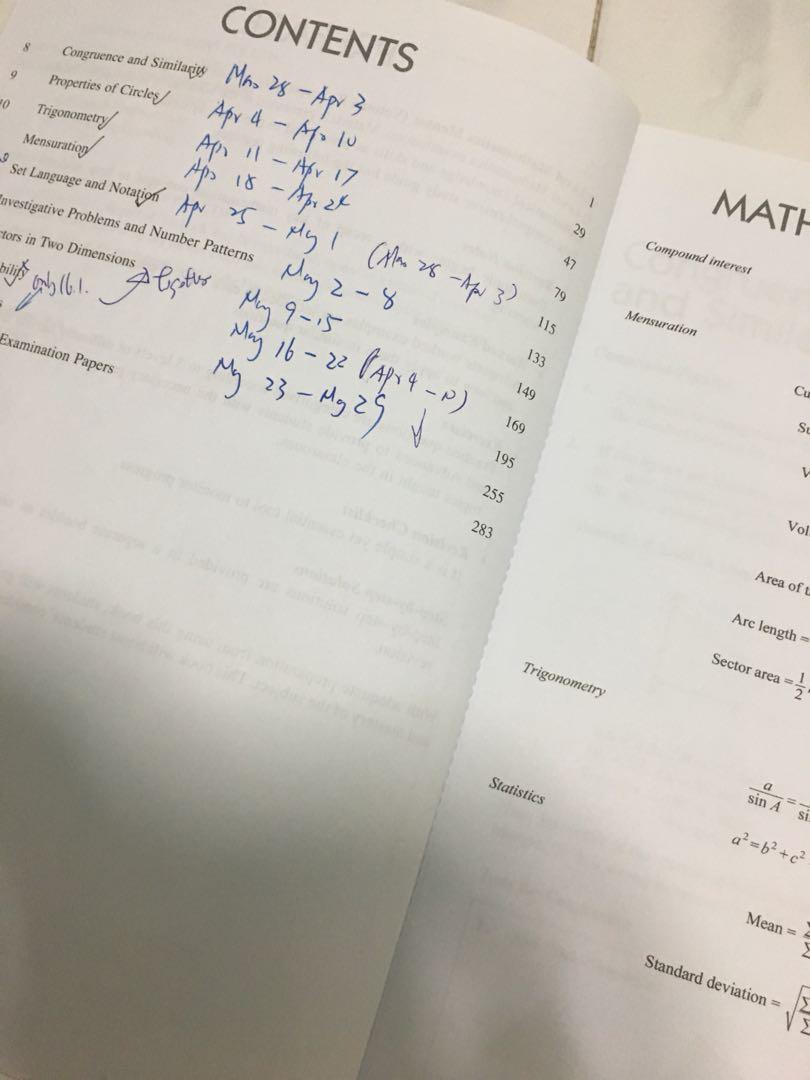 CONTENTS
8 Congruence and Similarity Mar 28 - Apr 3 1
9 Properties of Circles Apr 4 - Apr 10 29
10 Trigonometry Apr 11 - Apr 17 47
Mensuration Apr 18 - Apr 24 79
Set Language and Notation Apr 25 - May 1 115
Investigative Problems and Number Patterns May 2 - 8 (Mar 28 - Apr 3) 133
tors in Two Dimensions May 9-15 149
bility only 16.1. together May 16 - 22 (Apr 4 - 169
s May 23 - May 29 195
255
Examination Papers 283
MATH
Compound interest
Mensuration
Cu
Su
V
Vol
Area of t
Arc length =
Sector area = 1/2
Trigonometry
a/sin A = /si
a² = b² + c²
Statistics
Mean = Σ/Σ
Standard deviation = √Σ/Σ